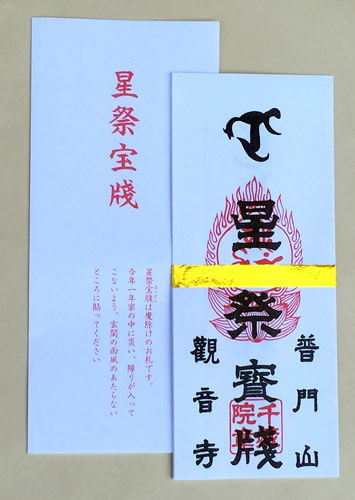 星祭宝牋
星祭宝牋は魔除けのお札です。
今年一年家の中に災い、障りが入って
こないよう、玄関の雨風のあたらない
ところに貼ってください
普門山
星祭寶牋
觀音寺